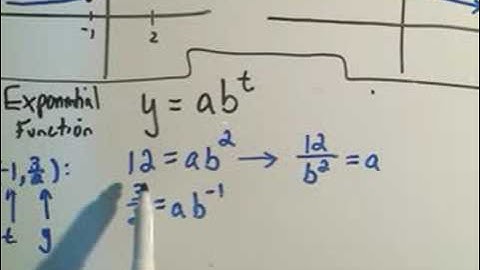 -1 2
Exponential
Function
y = ab^t
-1, 3/2):
t y
12 = ab^2 → 12/b^2 = a
3/2 = ab^-1